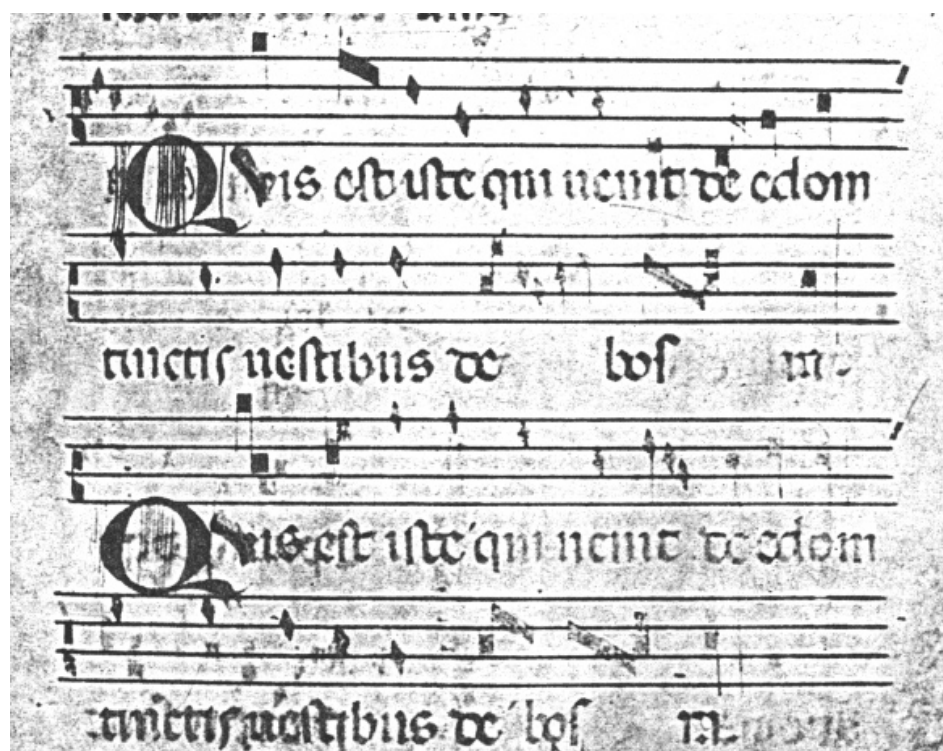 Quis est iste qui uenit de edom
tinctis uestibus de bos
Quis est iste qui uenit de edom
tinctis uestibus de bos